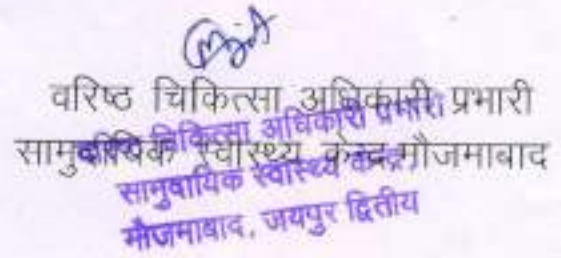 वरिष्ठ चिकित्सा अधिकारी प्रभारी
सामुदायिक स्वास्थ्य केन्द्र मौजमाबाद
चिकित्सा अधिकारी प्रभारी
सामुदायिक स्वास्थ्य केन्द्र,
मौजमाबाद, जयपुर द्वितीय